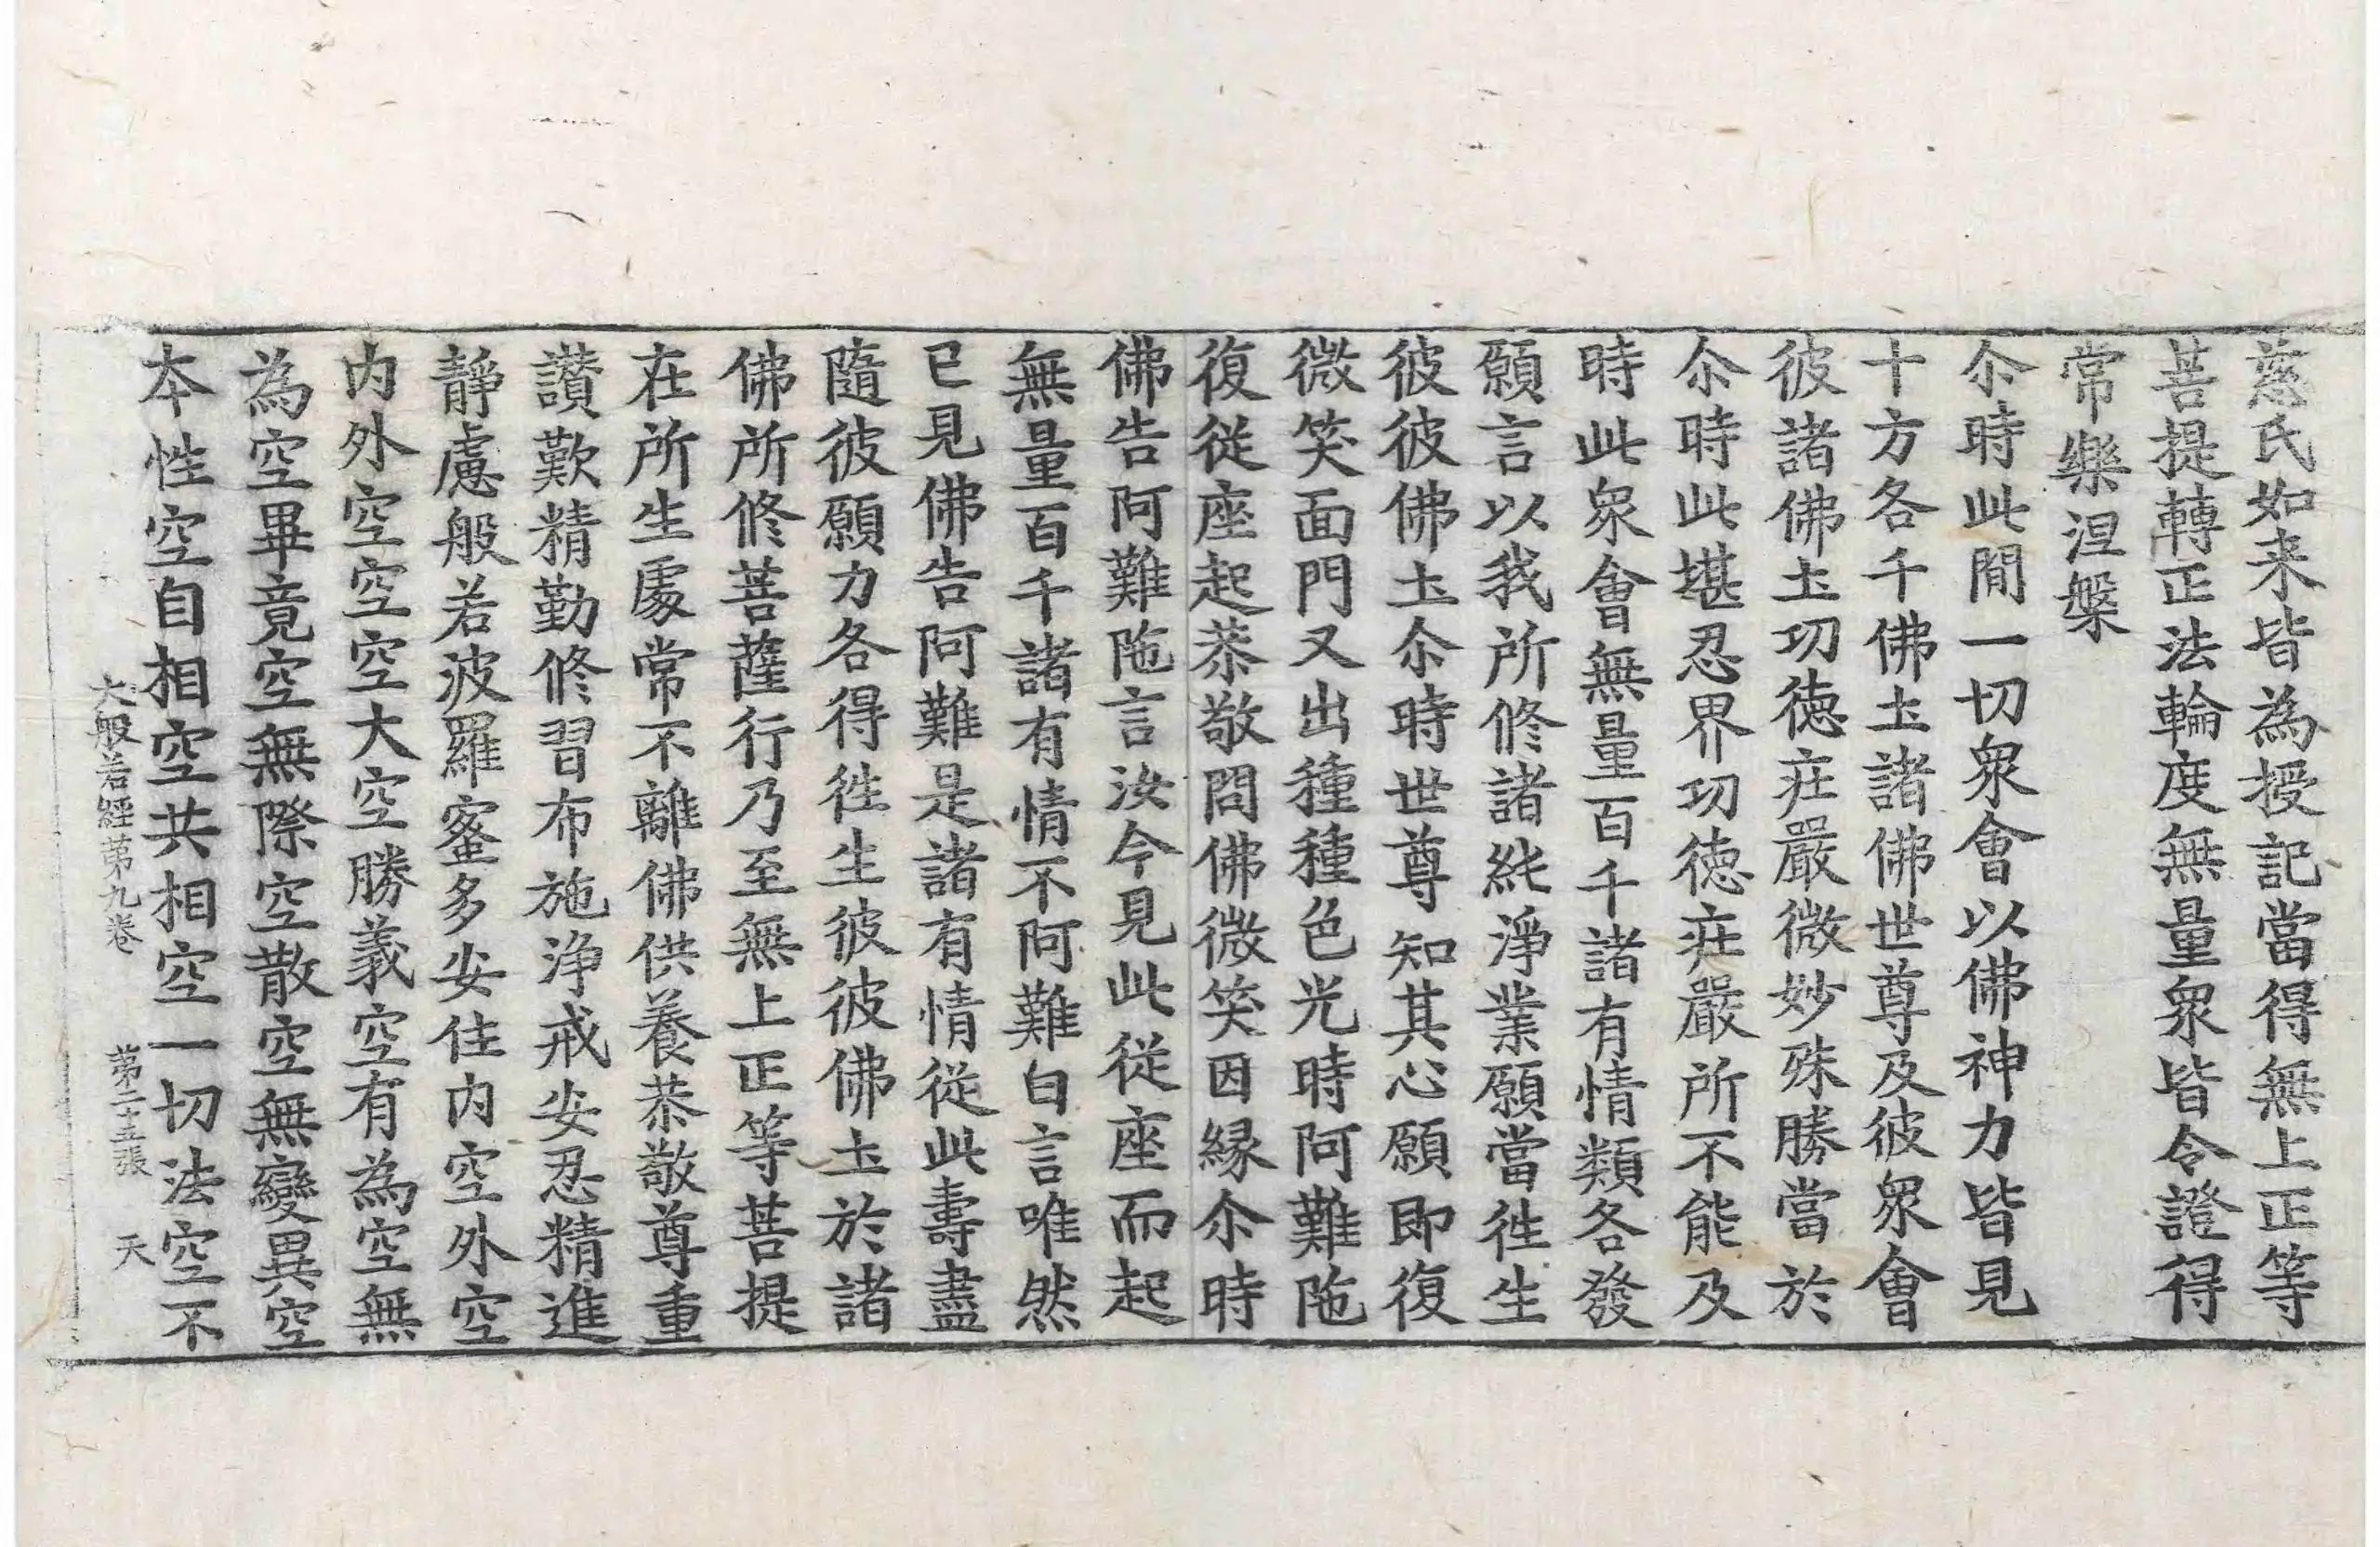 慈氏如来皆為授記當得無上正等
菩提轉正法輪度無量衆皆令證得
常樂涅槃
尒時此閒一切衆會以佛神力皆見
十方各千佛土諸佛世尊及彼衆會
彼諸佛土功徳莊嚴微妙殊勝當於
尒時此堪忍界功徳莊嚴所不能及
時此衆會無量百千諸有情類各發
願言以我所修諸純淨業願當徃生
彼彼佛土尒時世尊知其心願即復
微笑面門又出種種色光時阿難陁
復從座起恭敬問佛微笑因縁尒時
佛告阿難陁言汝今見此從座而起
無量百千諸有情不阿難白言唯然
已見佛告阿難是諸有情從此壽盡
隨彼願力各得徃生彼彼佛土於諸
佛所修菩薩行乃至無上正等菩提
在所生處常不離佛供養恭敬尊重
讃歎精勤修習布施浄戒安忍精進
靜慮般若波羅蜜多安住内空外空
内外空空空大空勝義空有為空無
為空畢竟空無際空散空無變異空
本性空自相空共相空一切法空不
大般若經第九卷 第二十五張 天